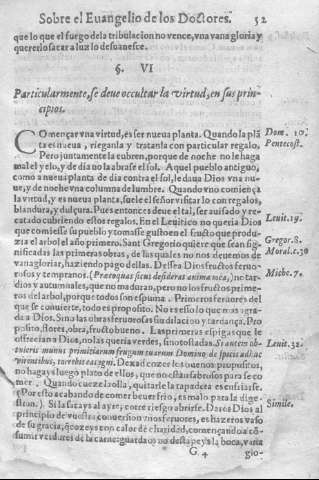 Sobre el Euangelio de los Doctores. 52
que lo que el fuego dela tribulacion no vence, vna vana gloria y
quererlo sacar a luz lo desuanesce.
§. VI
Particularmente, se deue occultar la virtud, en sus prin-
cipios.
COmençar vna virtud, es ser nueua planta. Quando la plã
ta es nueua, rieganla y tratanla con particular regalo.
Pero juntamente la cubren, porque de noche no le haga
mal el yelo, y de dia no la abrase el sol. A quel pueblo antiguo,
como a nueua planta de dia contra el sol, le daua Dios vna nu-
ue, y de noche vna columna de lumbre. Quando vno comiença
la virtud, y es nueua planta, suele el señor visitarlo con regalos,
blandura, y dulçura. Pues entonces deue el tal, ser auisado y re-
catado cubriendo essos regalos. En el Leuitico no queria Dios
que comiesse su pueblo y tomasse gusto en el fructo que produ-
zia el arbol el año primero. Sant Gregorio quiere que sean sig-
nificadas las primeras obras, de las quales no nos deuemos de
vanagloriar, haziendo pago dellas. Dessea Dios fructos feruo-
rosos y tempranos. (Præcoquas ficus desiderat anima mea,) no tar-
dios y autumnales, que no maduran, pero no los fructos prime-
ros del arbol, porque todos son espuma. Primeros feruores del
que se conuierte, todo es proposito. No es esso lo que mas agra-
da a Dios. Sino las obras feruorosas sin dilacion y tardança. Pro
posito, flores, obra, fructo bueno. Las primeras espigas que le
offrecian a Dios, no las queria verdes, sino tostadas. Si autem ob-
tuleris munus primitiarum frugum tuarum Domino de spicis adhuc
virentibus, torrebis ea igni. Dexad cozer los buenos propositos,
no hagays luego plato de ellos, que no están sabrosos para se co
mer. Quando cueze la olla, quitarle la tapadera es enfriarse.
(Por esto acabando de comer beuer frio, es malo para la dige-
stion.) Si la sacays al ayre, corre riesgo abrirse. Dareos Dios al
principio de vuestra conuersion vnos feruores, es hazeros vaso
de su gracia, q̃ cozeys con calor de charidad, començando a cõ-
sumir verdures de la carne: guardaos no destapeys la boca, varia
G 4 gio-
Dom. 10.
Pentecost.
Leuit. 19.
Gregor. 8.
Moral. c. 30
Miche. 7.
Leuit. 32.
Simile.